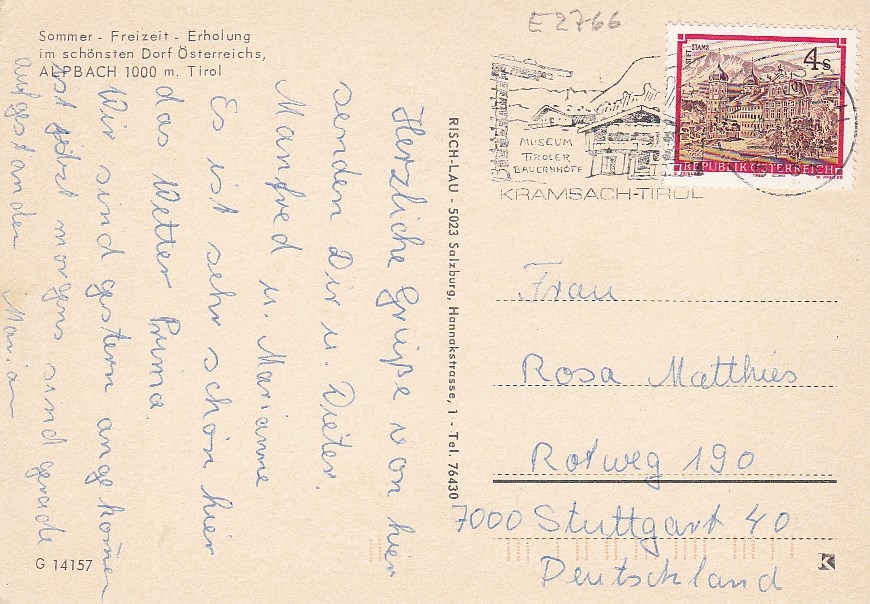 E2766
Sommer - Freizeit - Erholung
im schönsten Dorf Österreichs,
ALPBACH 1000 m. Tirol
STIFT STAMS
4s
REPUBLIK ÖSTERREICH
MUSEUM
TIROLER
BAUERNHÖFE
KRAMSACH-TIROL
Herzliche Grüße von hier
senden Dir u. Dieter.
Manfred u. Marianne
Es ist sehr schön hier
das Wetter Prima.
Wir sind gestern angekom̄en
ist jetzt morgens sind gerade
aufgestanden Marian
RISCH-LAU - 5023 Salzburg, Hannakstrasse, 1 - Tel. 76430
Frau
Rosa Matthies
Rotweg 190
7000 Stuttgart 40
Deutschland
G 14157
K